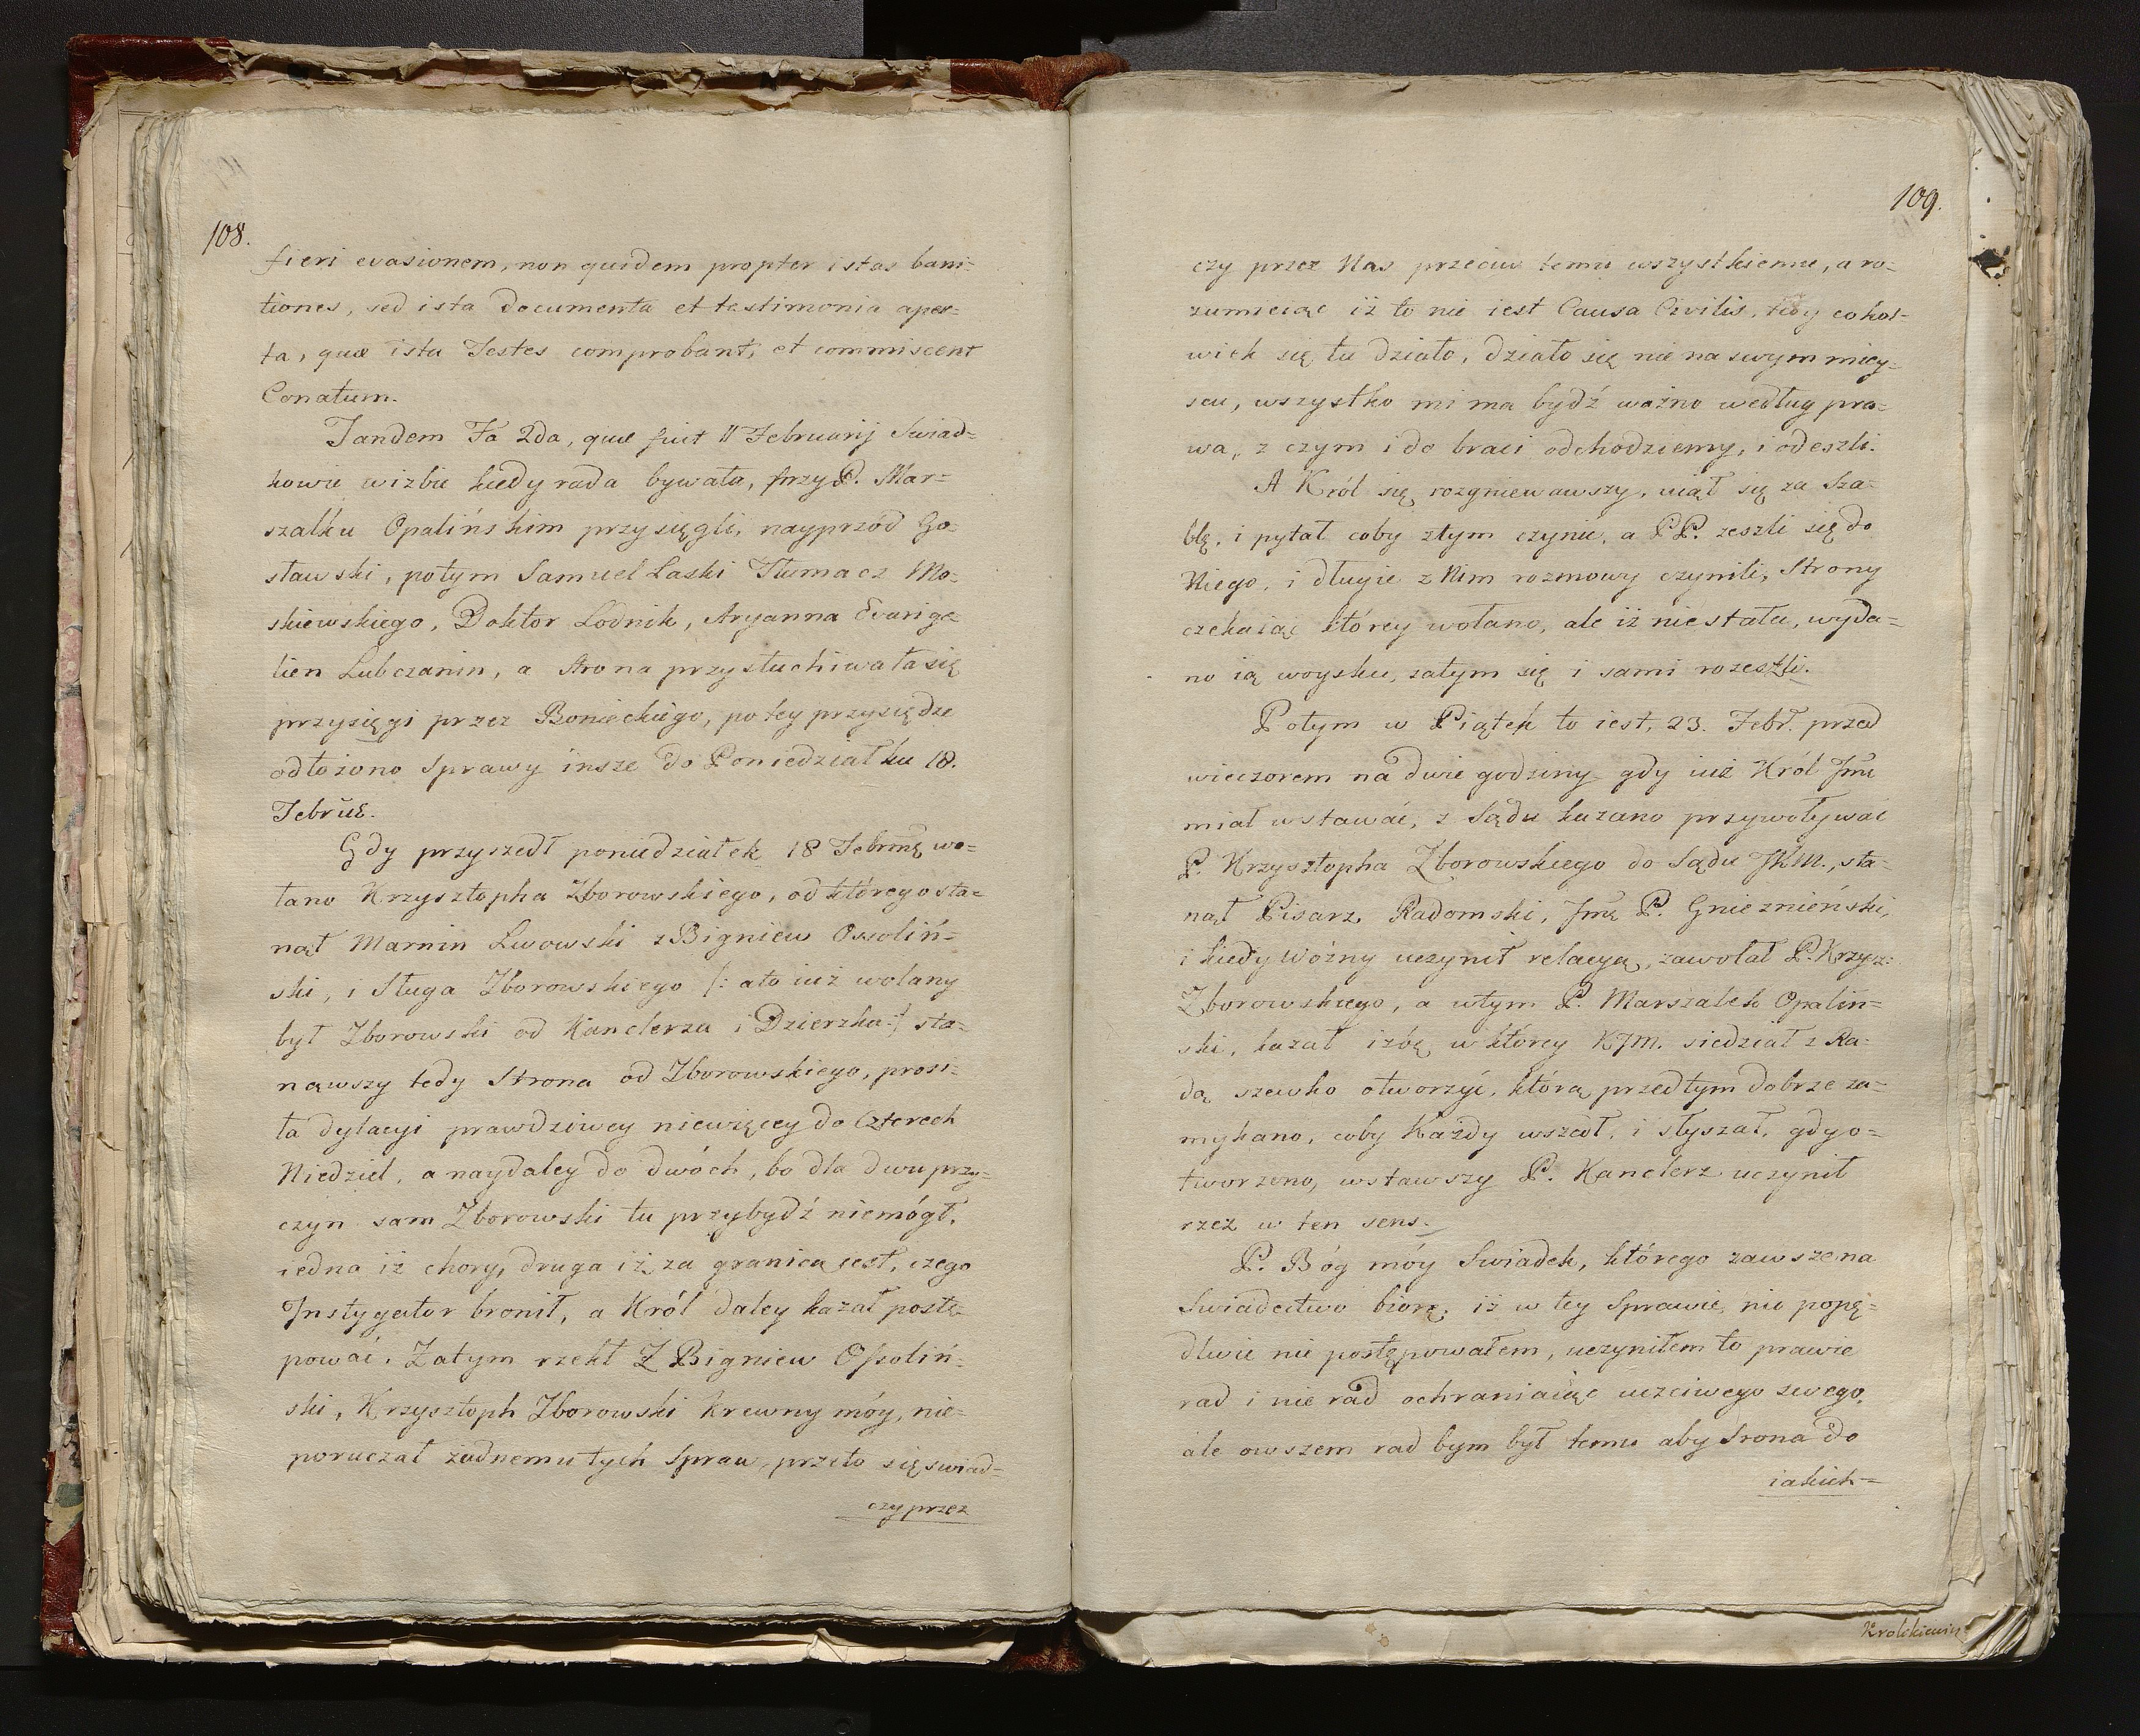 108.
fieri evasionem, non quidem propter istas bani-
tiones, sed ista Documenta et testimonia aper=
ta, quæ ista Testes comprobant, et commiscent
Conatum.
Tandem Fa 2da, quæ fuit 11 Februarij Swiad=
kowie w izbie kiedy rada bywała, przy P. Mar=
szałku Opalińskim przysięgli, nayprzód Go-
sławski, potym Samuel Laski Tłumacz Mo-
skiewskiego, Doktor Lodnik, Aryanna Evange-
lien Lubczanin, a Strona przysłuchiwała się
przysięgi przez Bonieckiego, po tey przysiędze
odłożono Sprawy insze do Poniedziałku 18.
Gdy przyszedł poniedziałek 18 wo=
łano Krzysztopha Zborowskiego, od którego sta=
nął Marnin Lwowski z Bigniew Ossoliń=
ski, i Sługa Zborowskiego /: a to iuż wołany
był Zborowski od Kanclerza i Dzierzka :/ sta=
nąwszy tedy Strona od Zborowskiego, prosi=
ła dylacyi prawdziwey niewięcey do Czterech
Niedziel, a naydaley do dwóch, bo dla dwu przy=
czyn sam Zborowski tu przybydź niemógł,
iedna iż chory, druga iż za granicą iest, czego
Instygator bronił, a Król daley kazał postę-
pować. Zatym rzekł Z Bigniew Ossoliń=
ski, Krzysztoph Zborowski krewny móy, nie=
poruczał żadnemu tych Spraw, przeto się swiad=
czy przez
109.
czy przez Nas przeciw temu wszystkiemu, a ro=
zumieiąc iż to nie iest Causa Civilis, tedy cokol=
wiek się tu działo, działo się nie na swym miey=
scu, wszystko mi ma bydź ważno według pra=
wa, z czym i do braci odchodziemy, i odeszli.
A Król się rozgniewawszy, uiął się za Sza=
blę, i pytał coby z tym czynić, a PP. zeszli się do
Niego, i długie z Nim rozmowy czynili, Strony
czekaiąc którey wołano, ale iż nie stała, wyda=
no ią woysku, zatym się i sami rozeszli.
Potym w Piątek to iest, 23. Febr. przed
wieczorem na dwie godziny gdy iuż Król Jmć
miał wstawać, z Sądu kazano przywoływać
P. Krzysztopha Zborowskiego do Sądu JKM., sta=
nął Pisarz Radomski, Jmć P. Gniezninśki,
i kiedy Woźny uczynił relacyą, zawołał P. Krzysz:
Zborowskiego, a wtym P. Marszałek Opaliń=
ski, kazał izbę w którey KJM. siedział z Ra=
dą szewko otworzyć, którą przedtym dobrze za=
mykano, coby Każdy wszedł, i słyszał, gdy o=
tworzono, wstawszy P. Kanclerz uczynił
rzez w ten sens.
P. Bóg móy Swiadek, którego zawsze na
Swiadectwo biorę, iż w tey Sprawie nic popę=
dliwie nie postępowałem, uczyniłem to prawie
rad i nie rad ochraniaiąc uczciwego swego,
ale owszem rad bym był temu aby Srona do
iakich=
Krolikiewicz